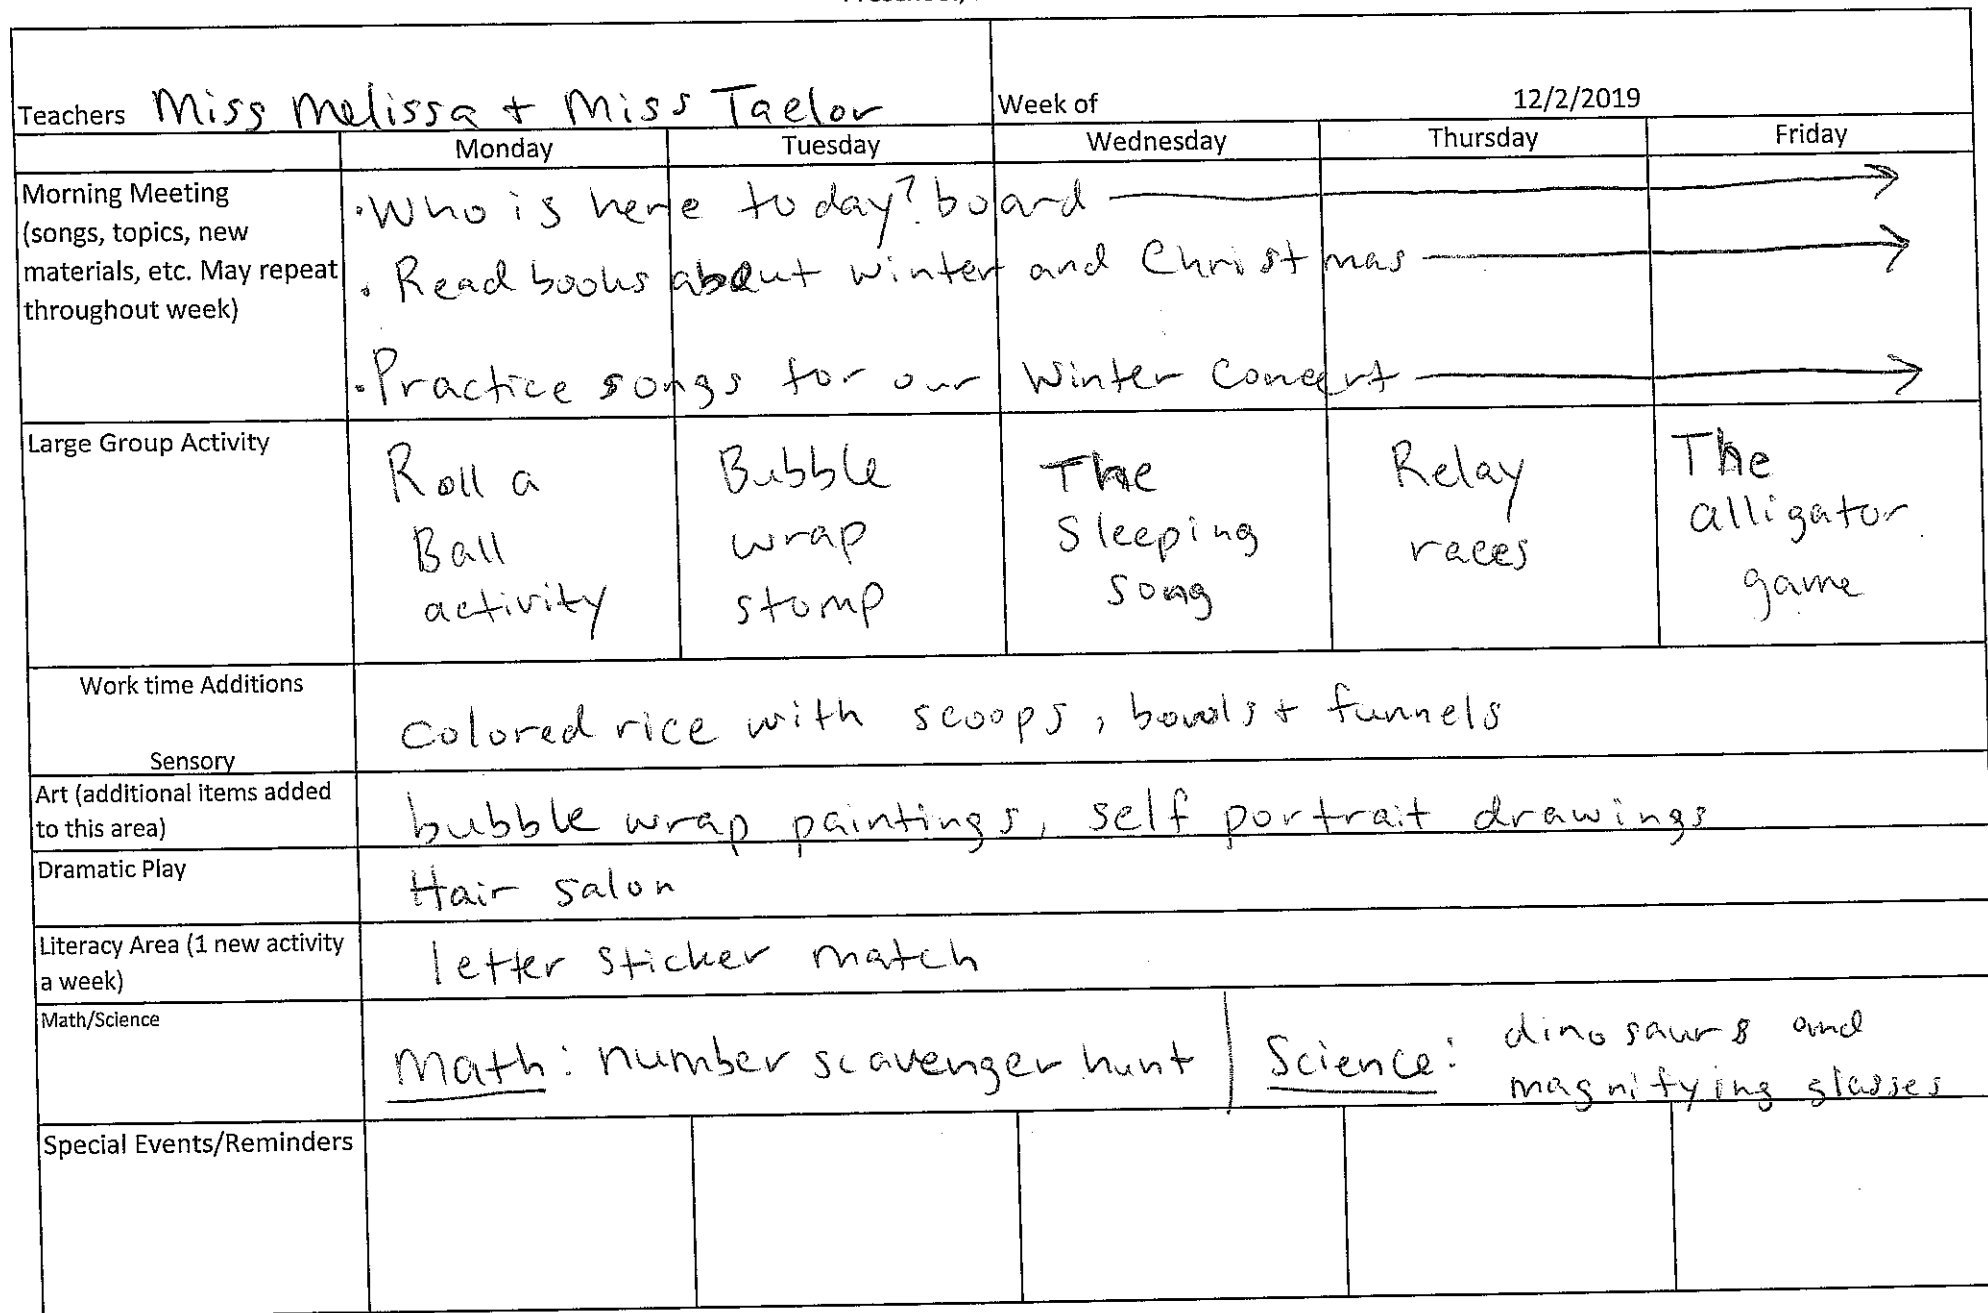 Teachers Miss Melissa + Miss Taelor Week of 12/2/2019
Monday Tuesday Wednesday Thursday Friday
Morning Meeting
(songs, topics, new
materials, etc. May repeat
throughout week)
·Who is here today? board
· Read books about winter and Christmas
·Practice songs for our Winter Concert
Large Group Activity
Roll a
Ball
activity
Bubble
wrap
stomp
The
Sleeping
Song
Relay
races
The
alligator
game
Work time Additions
Sensory
colored rice with scoops, bowls + funnels
Art (additional items added
to this area)
bubble wrap paintings, self portrait drawings
Dramatic Play
Hair salon
Literacy Area (1 new activity
a week)
letter sticker match
Math/Science
Math: number scavenger hunt
Science: dinosaurs and
magnifying glasses
Special Events/Reminders